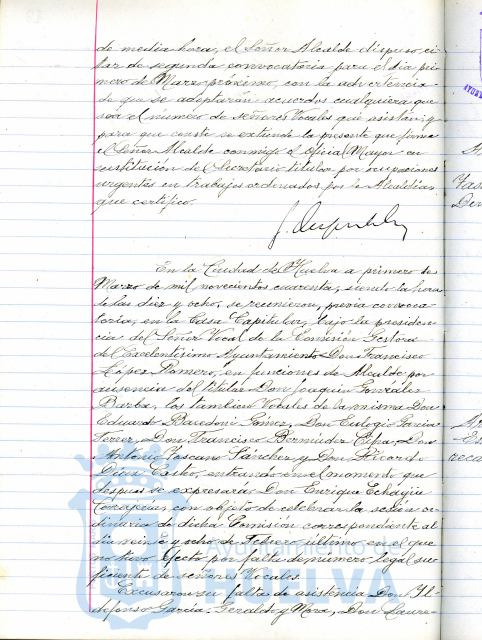 de media hora, el Señor Alcalde dispuso, ci-
tar de segunda convocatoria para el dia pri-
mero de Marzo próximo, con la advertencia
de que se adoptarán acuerdos cualquiera que
sea el número de señores Vocales que asistan; y
para que conste se extiende la presente que firma
el Señor Alcalde conmigo el Oficial Mayor en
sustitución del Secretario titular por ocupaciones
urgentes en trabajos ordenados por la Alcaldia
que certifico.
En la Ciudad de Huelva a primero de
Marzo de mil novecientos cuarenta, siendo la hora
de las diez y ocho, se reunieron, previa convoca-
toria, en la Casa Capitular, bajo la presiden-
cia del Señor Vocal de la Comisión Gestora
del Excelentísimo Ayuntamiento Don Francisco
López Romero, en funciones de Alcalde por
ausencia del titular Don Joaquin González
Barba, los tambien Vocales de la misma Don
Eduardo Gomez, Don Eulogio Garcia
Ferrer, Don Francisco Bermúdez Don
Antonio Toscano Sánchez y Don Ricardo
Diaz Castro, entrando en el momento que
después se expresará Don Enrique Echagüe
con objeto de celebrar la sesión or-
dinaria de dicha Comisión correspondiente al
dia veinte y ocho de Febrero último, en el que
no tuvo efecto por falta de número legal su-
ficiente de señores Vocales.
Excusaron su falta de asistencia Don Il-
defonso Garcia Geraldo y Mora, Don Laure-
Ayuntamiento de
HUELVA